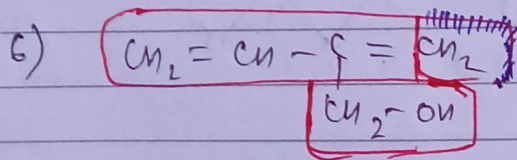 6) CH₂ = CH - C = CH₂
CH₂ - OH